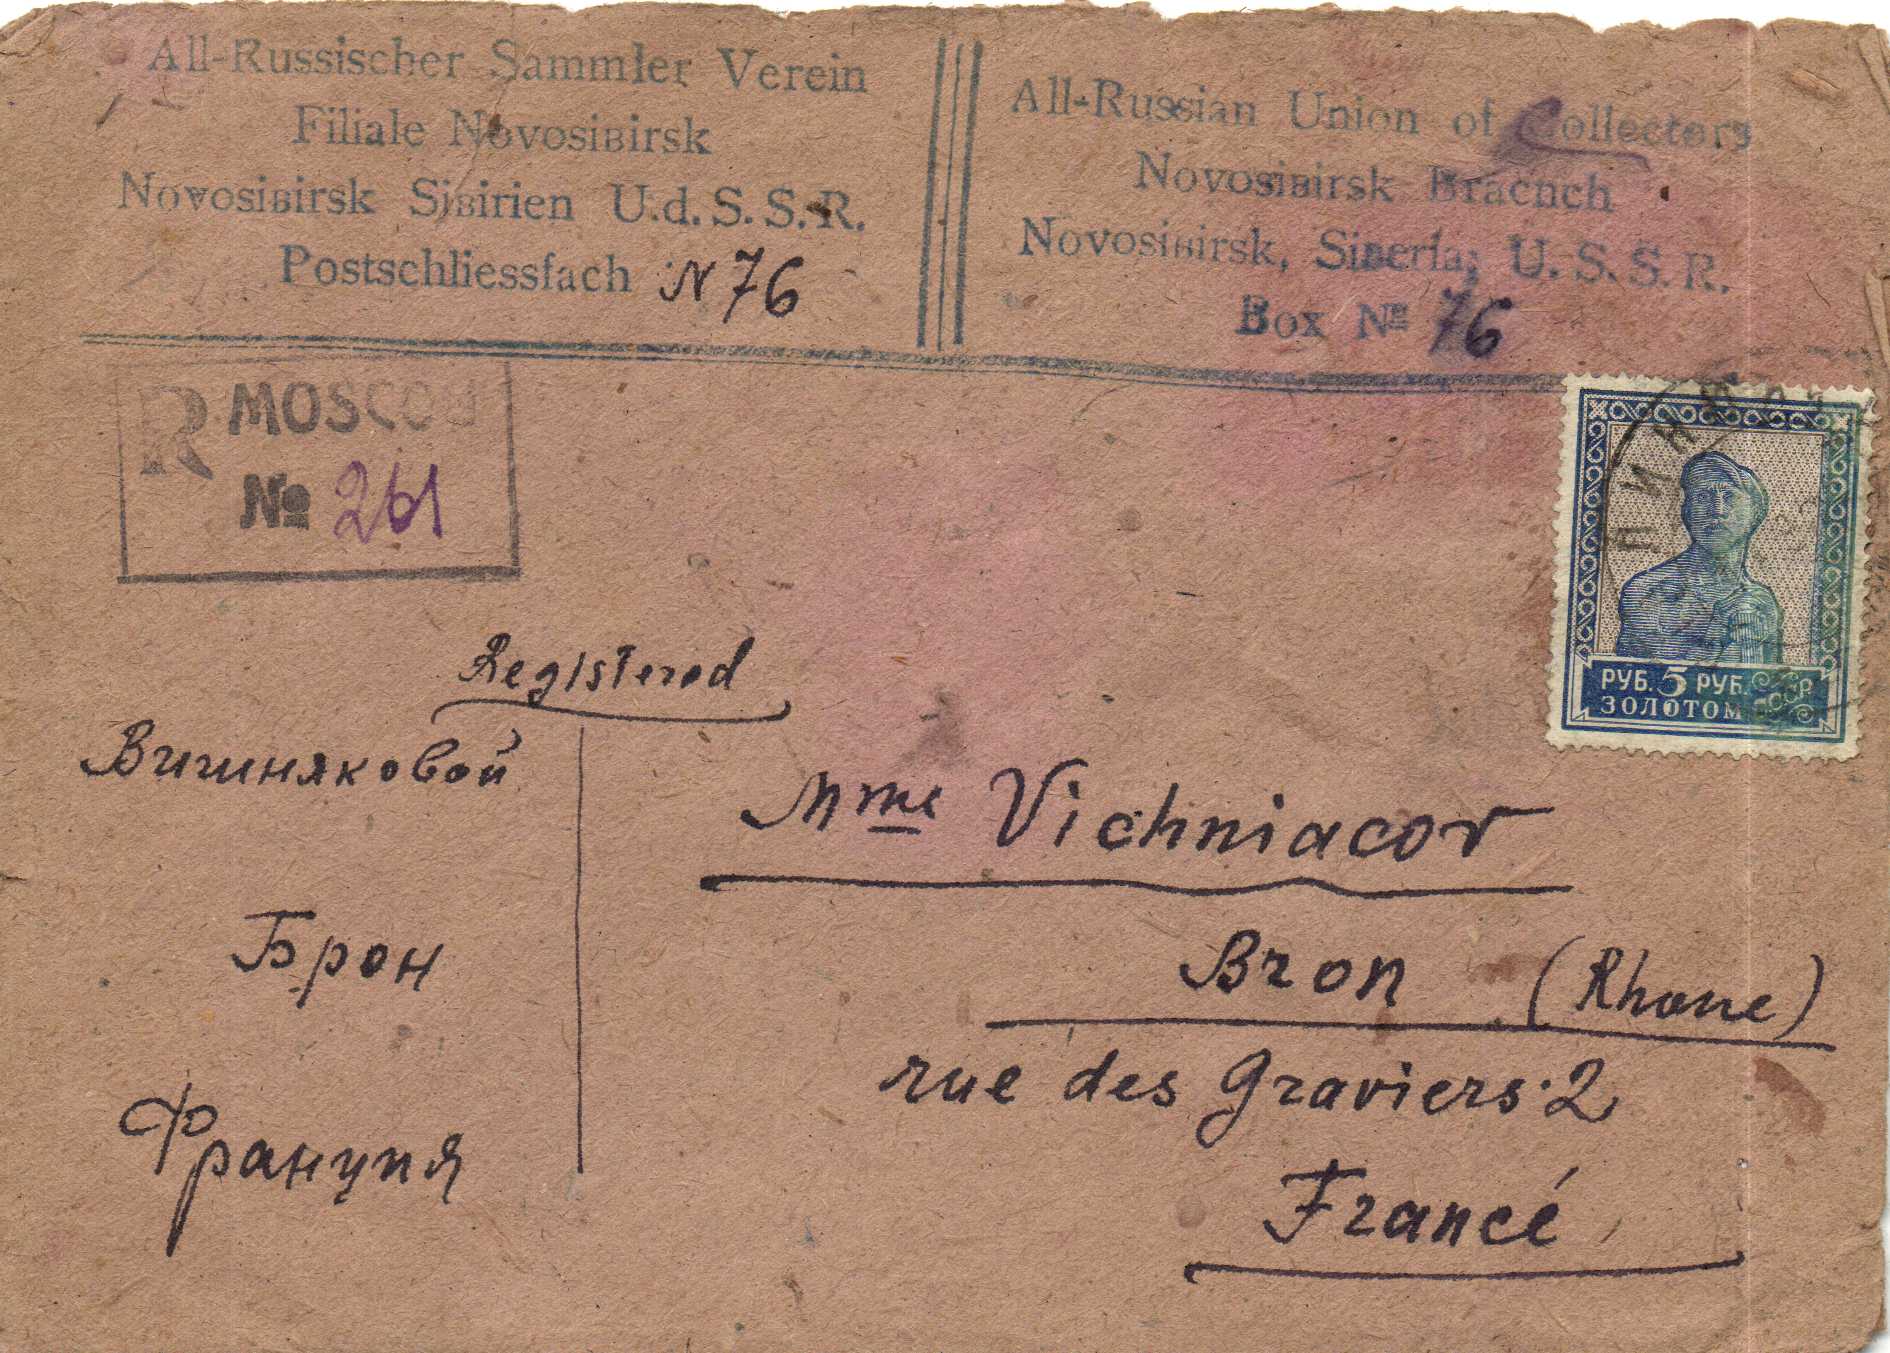 All-Russischer Sammler Verein
Filiale Novosibirsk
Novosibirsk Sibirien U.d.S.S.R.
Postschliessfach N 76
All-Russian Union of Collectors
Novosibirsk Bracnch
Novosibirsk, Siberia, U.S.S.R.
Box № 76
R MOSCOU
№ 261
РУБ. 5 РУБ.
ЗОЛОТОМ СССР
Registered
Вишняковой
Брон
Франция
Mme Vichniacov
Bron (Rhone)
rue des Graviers 2
Francé